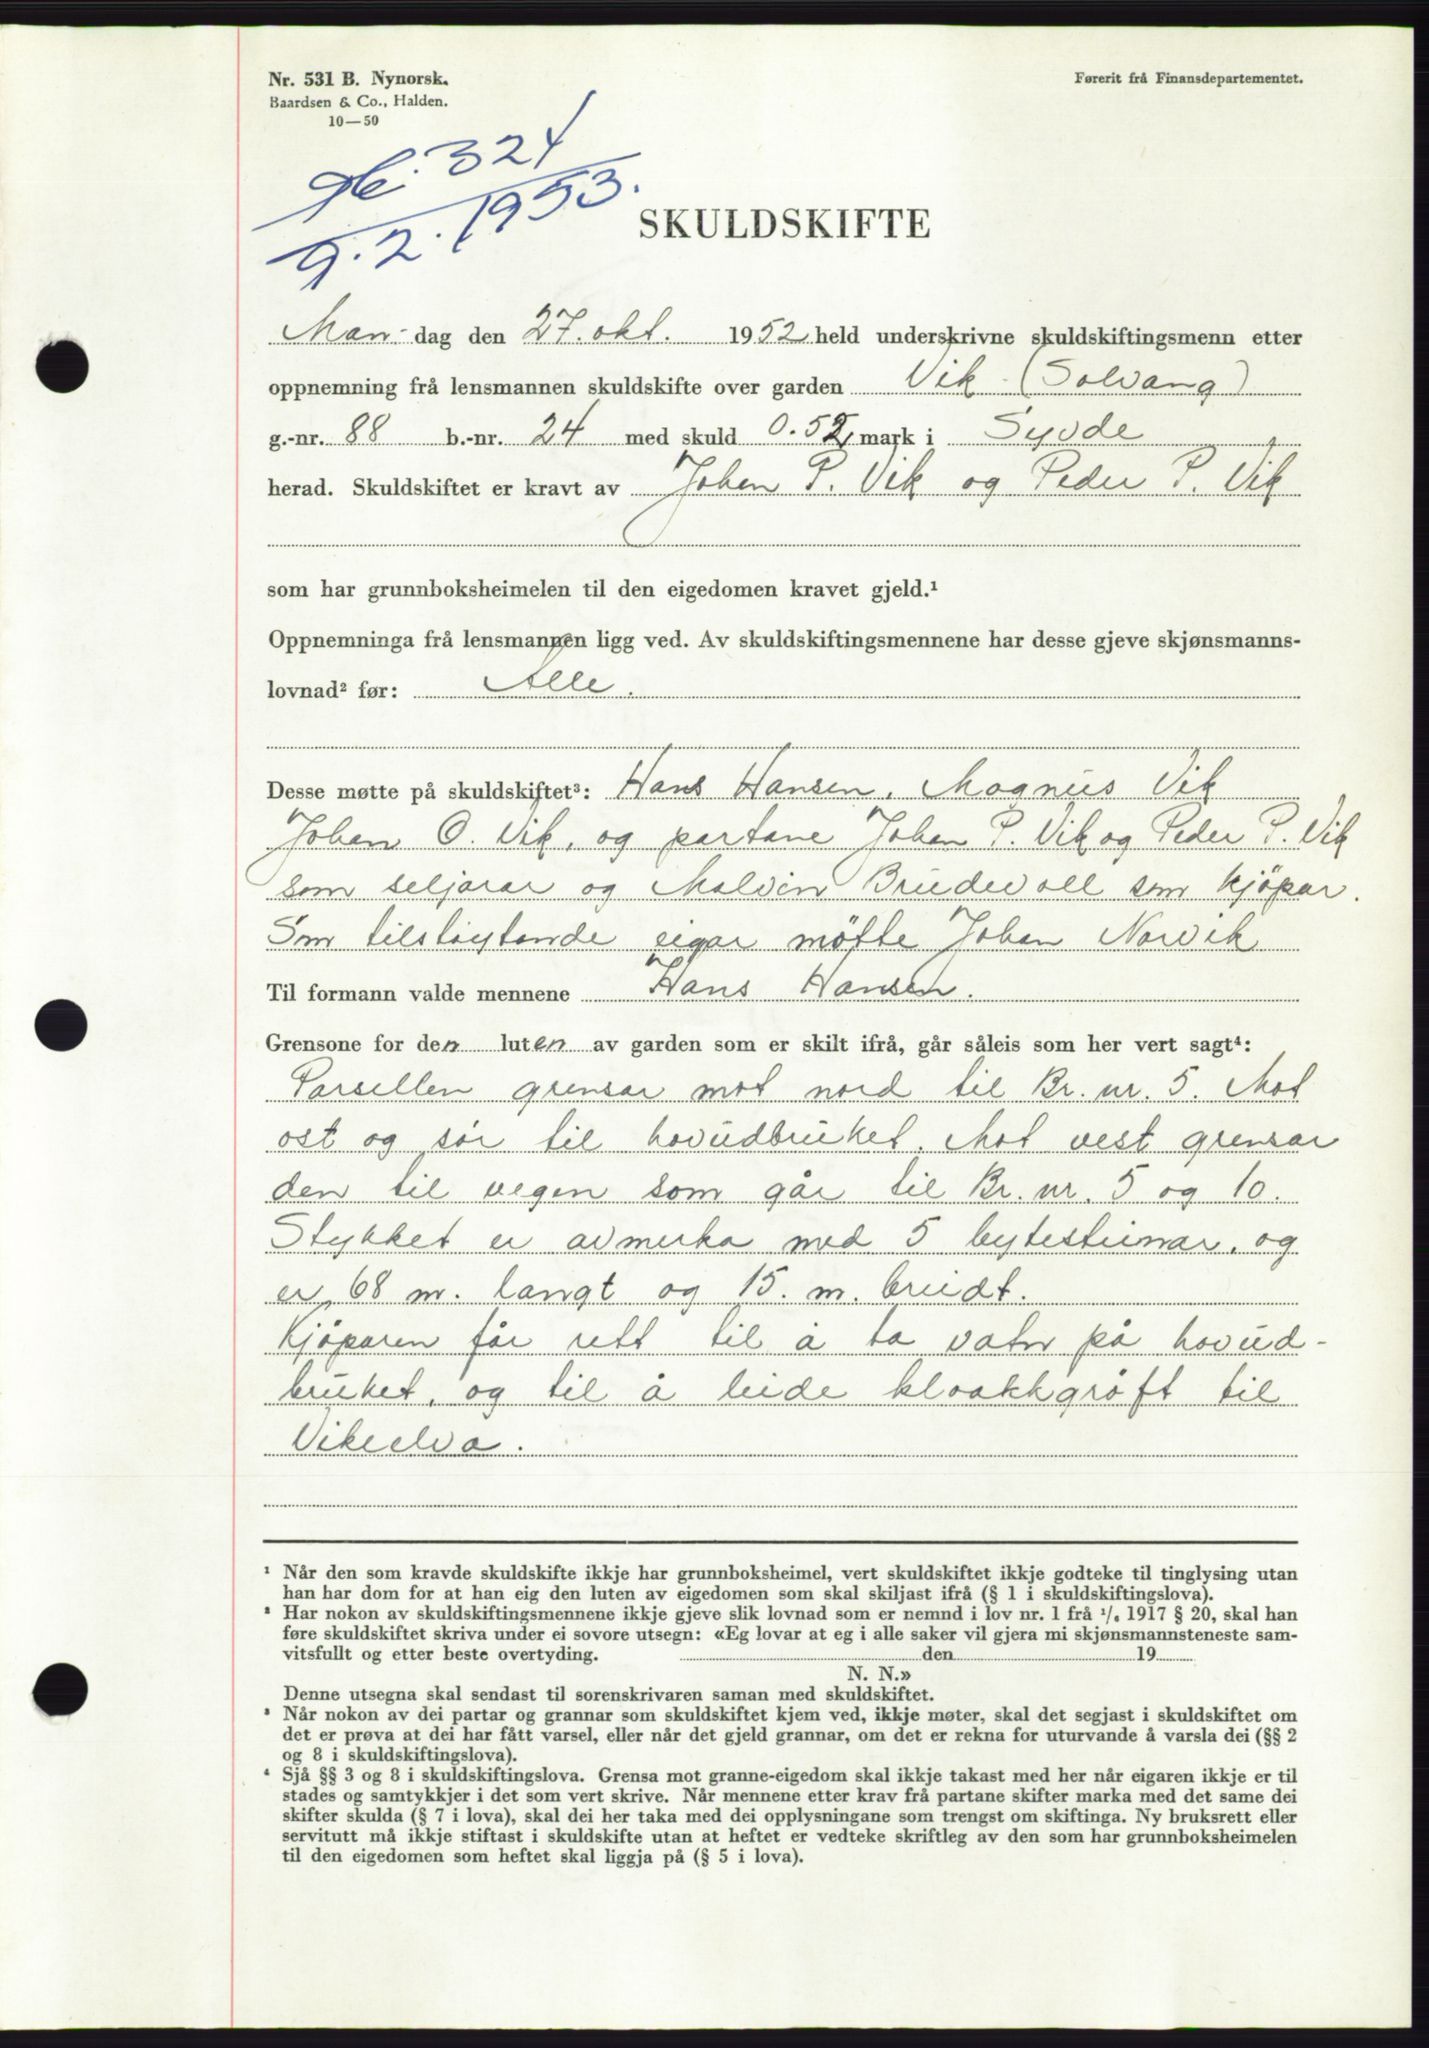 Nr. 531 B. Nynorsk.
Baardsen & Co., Halden.
10—50
Førerit frå Finansdepartementet.
324
9.2.1953.
SKULDSKIFTE
Man- dag den 27. okt. 1952 held underskrivne skuldskiftingsmenn etter
oppnemning frå lensmannen skuldskifte over garden Vik (Solvang)
g.-nr. 88 b.-nr. 24 med skuld 0.52 mark i Syvde
herad. Skuldskiftet er kravt av Johan P. Vik og Peder P. Vik
som har grunnboksheimelen til den eigedomen kravet gjeld.¹
Oppnemninga frå lensmannen ligg ved. Av skuldskiftingsmennene har desse gjeve skjønsmanns-
lovnad² før: Alle.
Desse møtte på skuldskiftet³: Hans Hansen, Magnus Vik
Johan O. Vik, og partane Johan P. Vik og Peder P. Vik
som seljarar og Malvin Brudevoll som kjöpar.
Som tilstøytande eigar møtte Johan Norvik
Til formann valde mennene Hans Hansen.
Grensone for den luten av garden som er skilt ifrå, går såleis som her vert sagt⁴:
Parsellen grensar mot nord til Br. nr. 5. Mot
ost og sør til hovudbruket. Mot vest grensar
den til vegen som går til Br. nr. 5 og 10.
Stykket er avmerka med 5 bytesteinar, og
er 68 m. langt og 15. m. breidt.
Kjöparen får rett til å ta vatn på hovud-
bruket, og til å leide kloakkgrøft til
Vikelva.
¹ Når den som kravde skuldskifte ikkje har grunnboksheimel, vert skuldskiftet ikkje godteke til tinglysing utan
han har dom for at han eig den luten av eigedomen som skal skiljast ifrå (§ 1 i skuldskiftingslova).
² Har nokon av skuldskiftingsmennene ikkje gjeve slik lovnad som er nemnd i lov nr. 1 frå ¹/₆ 1917 § 20, skal han
føre skuldskiftet skriva under ei sovore utsegn: «Eg lovar at eg i alle saker vil gjera mi skjønsmannsteneste sam-
vitsfullt og etter beste overtyding. den 19
N. N.»
Denne utsegna skal sendast til sorenskrivaren saman med skuldskiftet.
³ Når nokon av dei partar og grannar som skuldskiftet kjem ved, ikkje møter, skal det segjast i skuldskiftet om
det er prøva at dei har fått varsel, eller når det gjeld grannar, om det er rekna for uturvande å varsla dei (§§ 2
og 8 i skuldskiftingslova).
⁴ Sjå §§ 3 og 8 i skuldskiftingslova. Grensa mot granne-eigedom skal ikkje takast med her når eigaren ikkje er til
stades og samtykkjer i det som vert skrive. Når mennene etter krav frå partane skifter marka med det same dei
skifter skulda (§ 7 i lova), skal dei her taka med dei opplysningane som trengst om skiftinga. Ny bruksrett eller
servitutt må ikkje stiftast i skuldskifte utan at heftet er vedteke skriftleg av den som har grunnboksheimelen
til den eigedomen som heftet skal liggja på (§ 5 i lova).